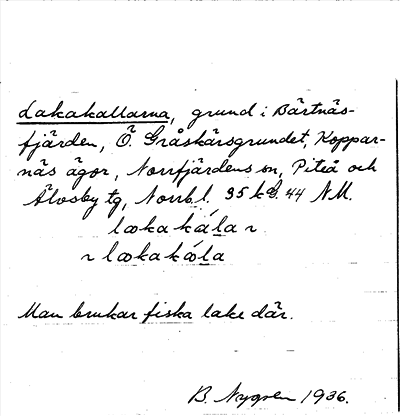 Lakakallarna, grund i Bärtnäs-
fjärden, Ö. Gråskärsgrundet, Koppar-
näs ägor, Norrfjärdens sn, Piteå och
Älvsby tg, Norrb. l. 35 k S. 44 NM.
Man brukar fiska lake där.
B. Nygren 1936.